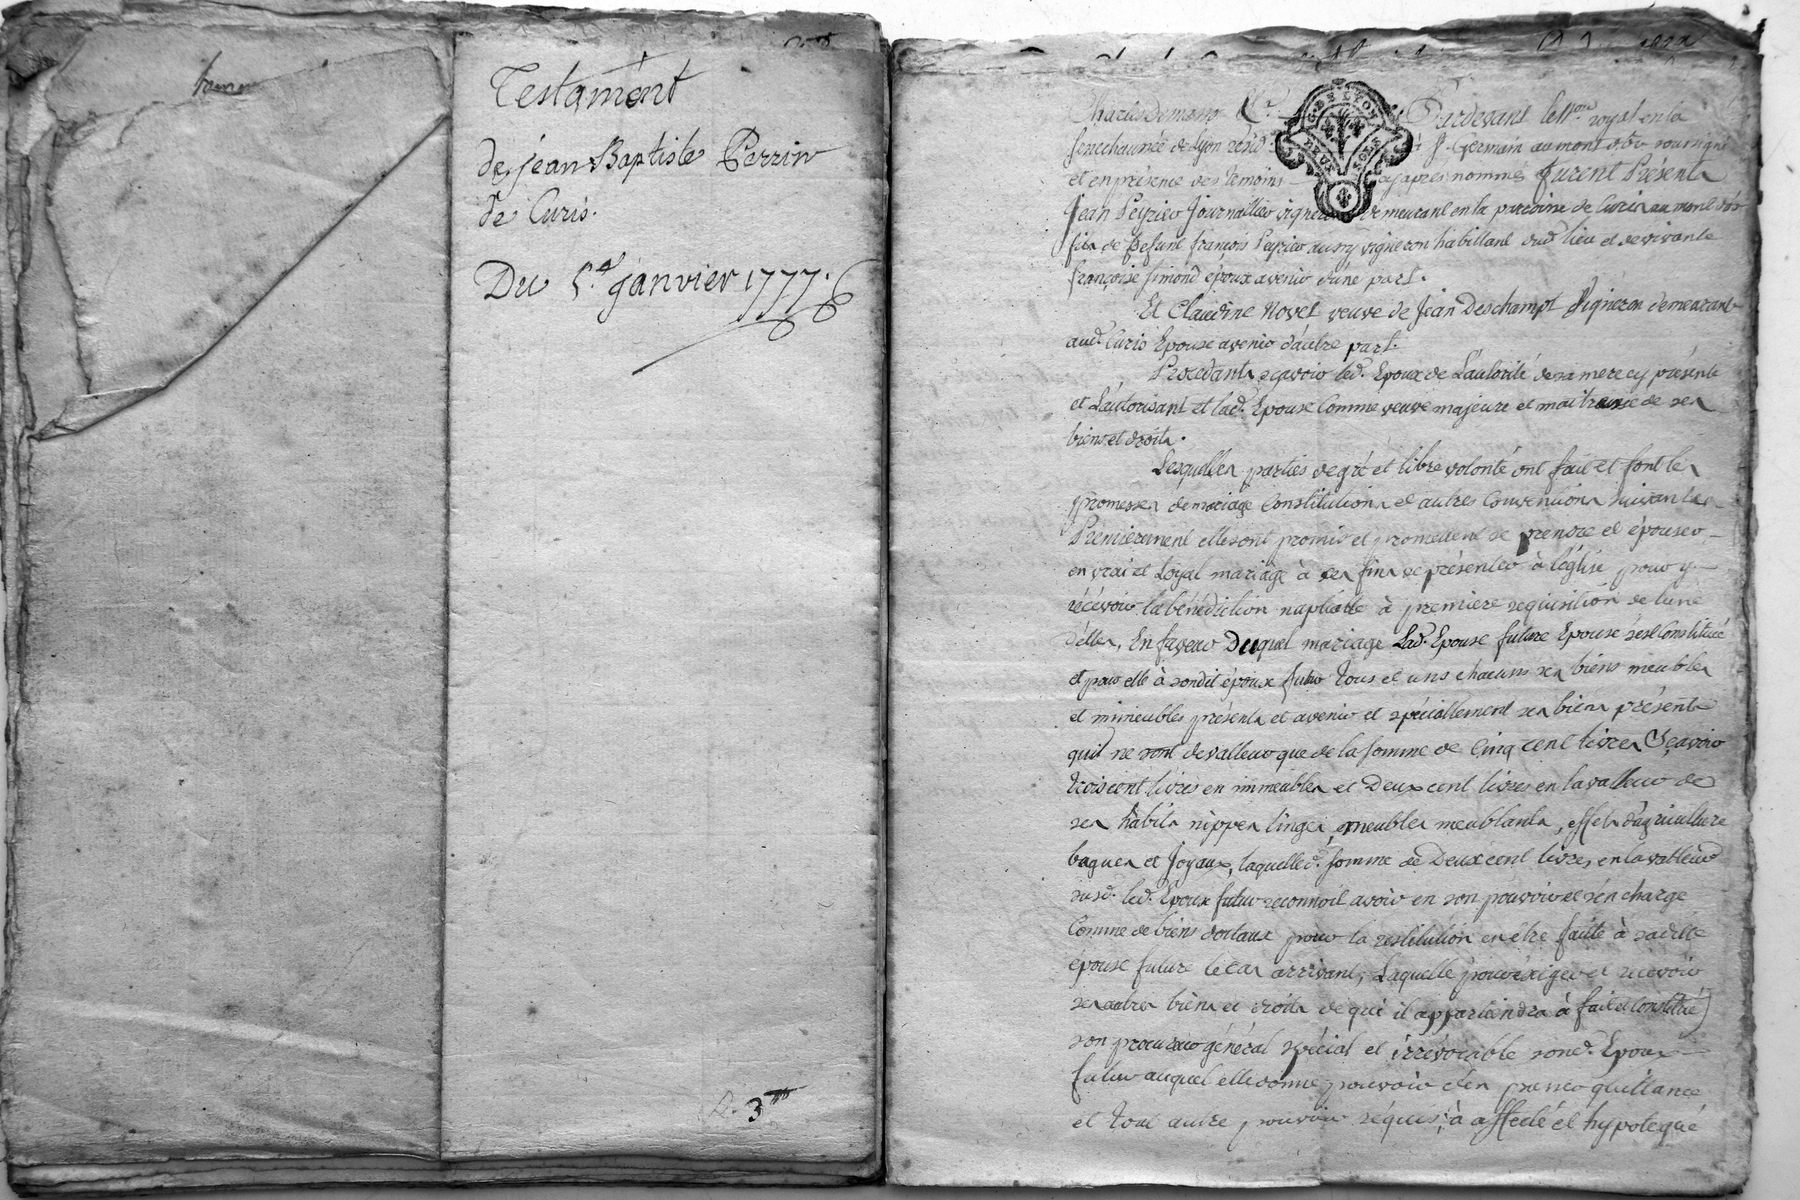 Testament
de jean Baptiste Perrin
de Curis.
Du 5.e janvier 1777.
3
G. DE LYON
DEUX SOLS
Pardevant le Nre royal en la
senechaussée de Lyon resid. St Germain au mont d'or soussigné
et en présence des temoins cy apres nommés furent Présents
Jean Peyrieu Journallier vigneron demeurant en la paroisse de Curis au mont d'or
fils de Defunt françois Peyrieu aussy vigneron habittant dud. lieu et de vivante
françoise simond époux avenir d'une part.
Et Claudine Novet veuve de Jean Deschampt Vigneron demeurant
aud. Curis Epouse avenir d'autre part.
Procedants sçavoir led. Epoux de L'autorité de sa mere cy présente
et L'autorisant et lad. Epouse Comme veuve majeure et maitresse de ses
biens et droits.
Lesquelles parties de gré et libre volonté ont fait et font les
promesses de mariage Constitutions et autres Conventions suivantes
Premierement elles ont promis et promettent se prendre et épouser
en vrai et Loyal mariage à ces fins se présenter à l'église pour y
récévoir la bénédiction nuptialle à premiere requisition de l'une
d'elles, En faveur Duquel mariage Lad. Epouse future Epouse s'est Constituée
et pour elle à sondit époux futur tous et uns chacuns ses biens meubles
et immeubles présents et avenir et spéciallement ses biens présents
quil ne sont de valleur que de la somme de Cinq cent livres Sçavoir
trois cent livres en immeubles et Deux cent livres en la valleur de
ses habits nippes linges, meubles meublants, effets d'agriculture
bagues et Joyaux, laquelle d. somme de Deux cent livres en la valleur
susd. led. Epoux futur reconnoit avoir en son pouvoir et s'en charge
Comme de biens dotaux pour la restitution en être faitte à saditte
epouse future le cas arrivant, Laquelle pour éxiger et recevoir
ses autres biens et droits de qui il appartiendra à fait et Constitué
son procureur général spécial et irrévocable sond. Epoux
futur auquel elle donne pouvoir d'en passer quittance
et tout autre pouvoir réquis, à affecté et hypotequé